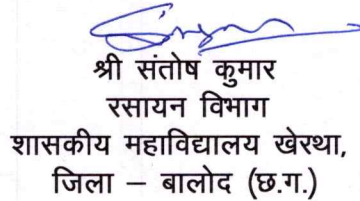 श्री संतोष कुमार
रसायन विभाग
शासकीय महाविद्यालय खेरथा,
जिला – बालोद (छ.ग.)